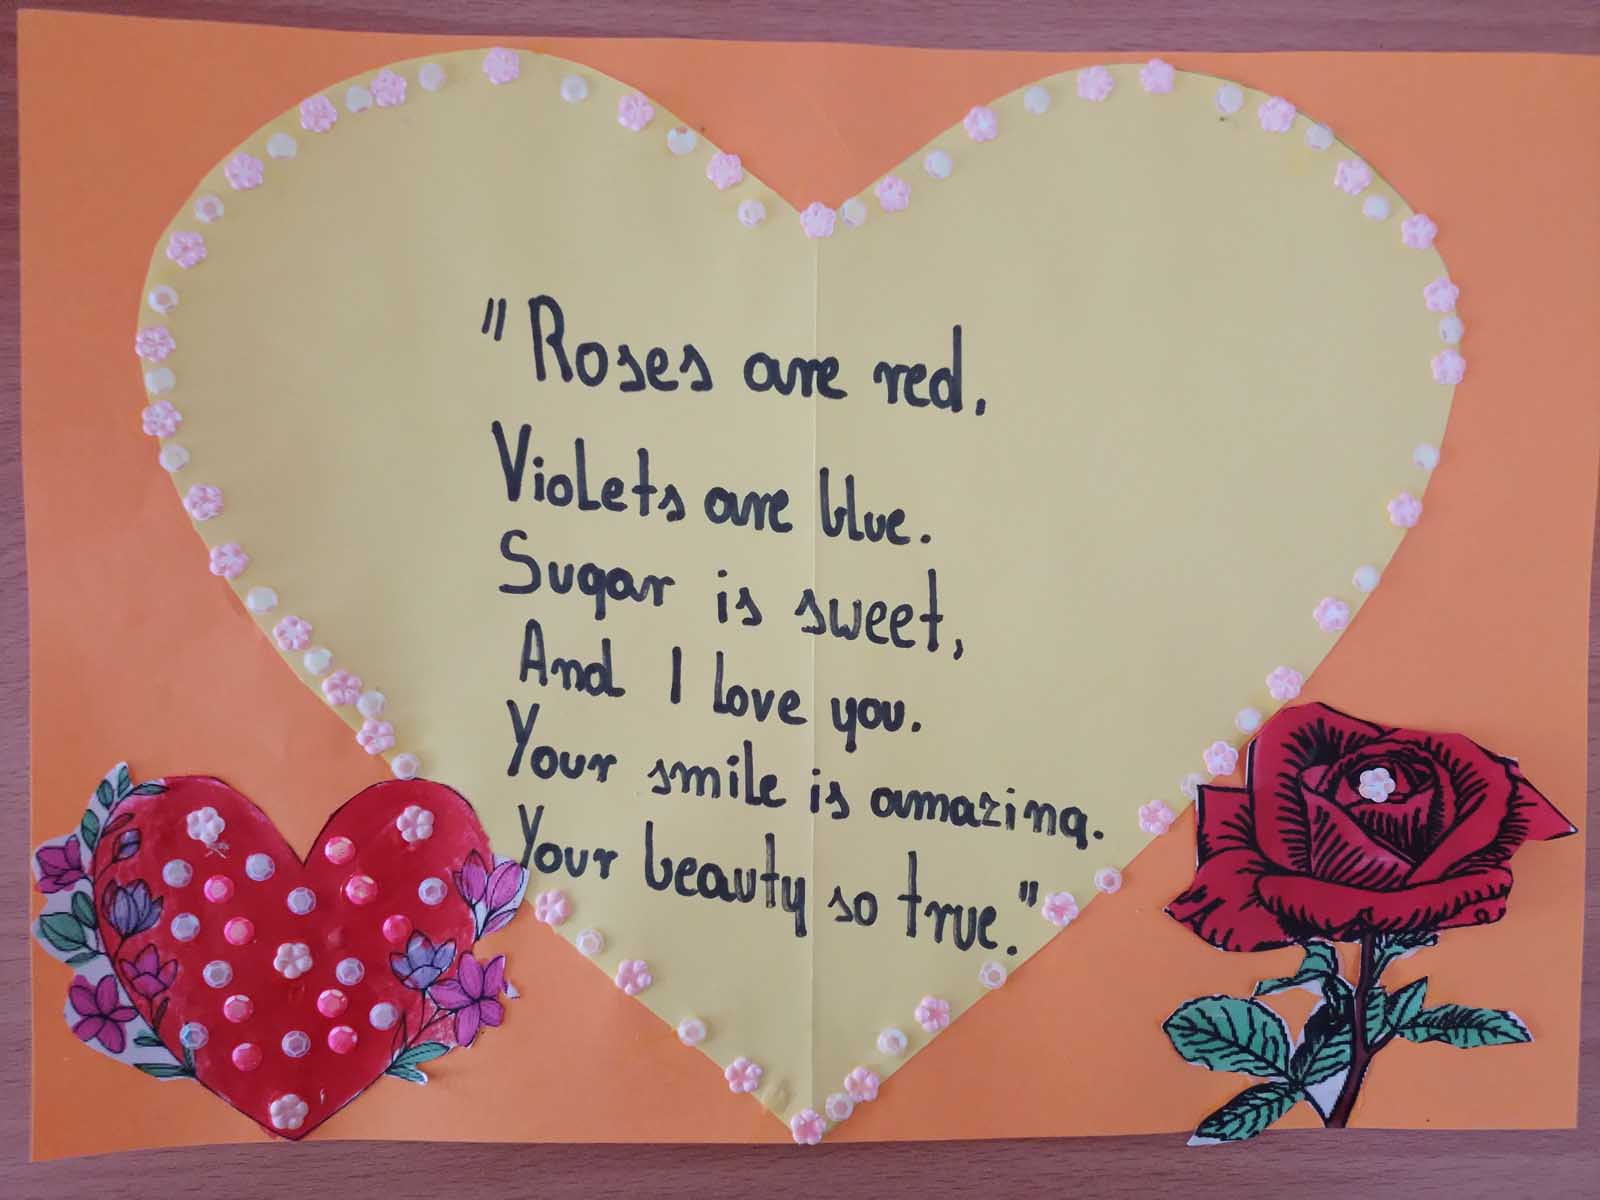 "Roses are red,
Violets are blue.
Sugar is sweet,
And I love you.
Your smile is amazing.
Your beauty so true."